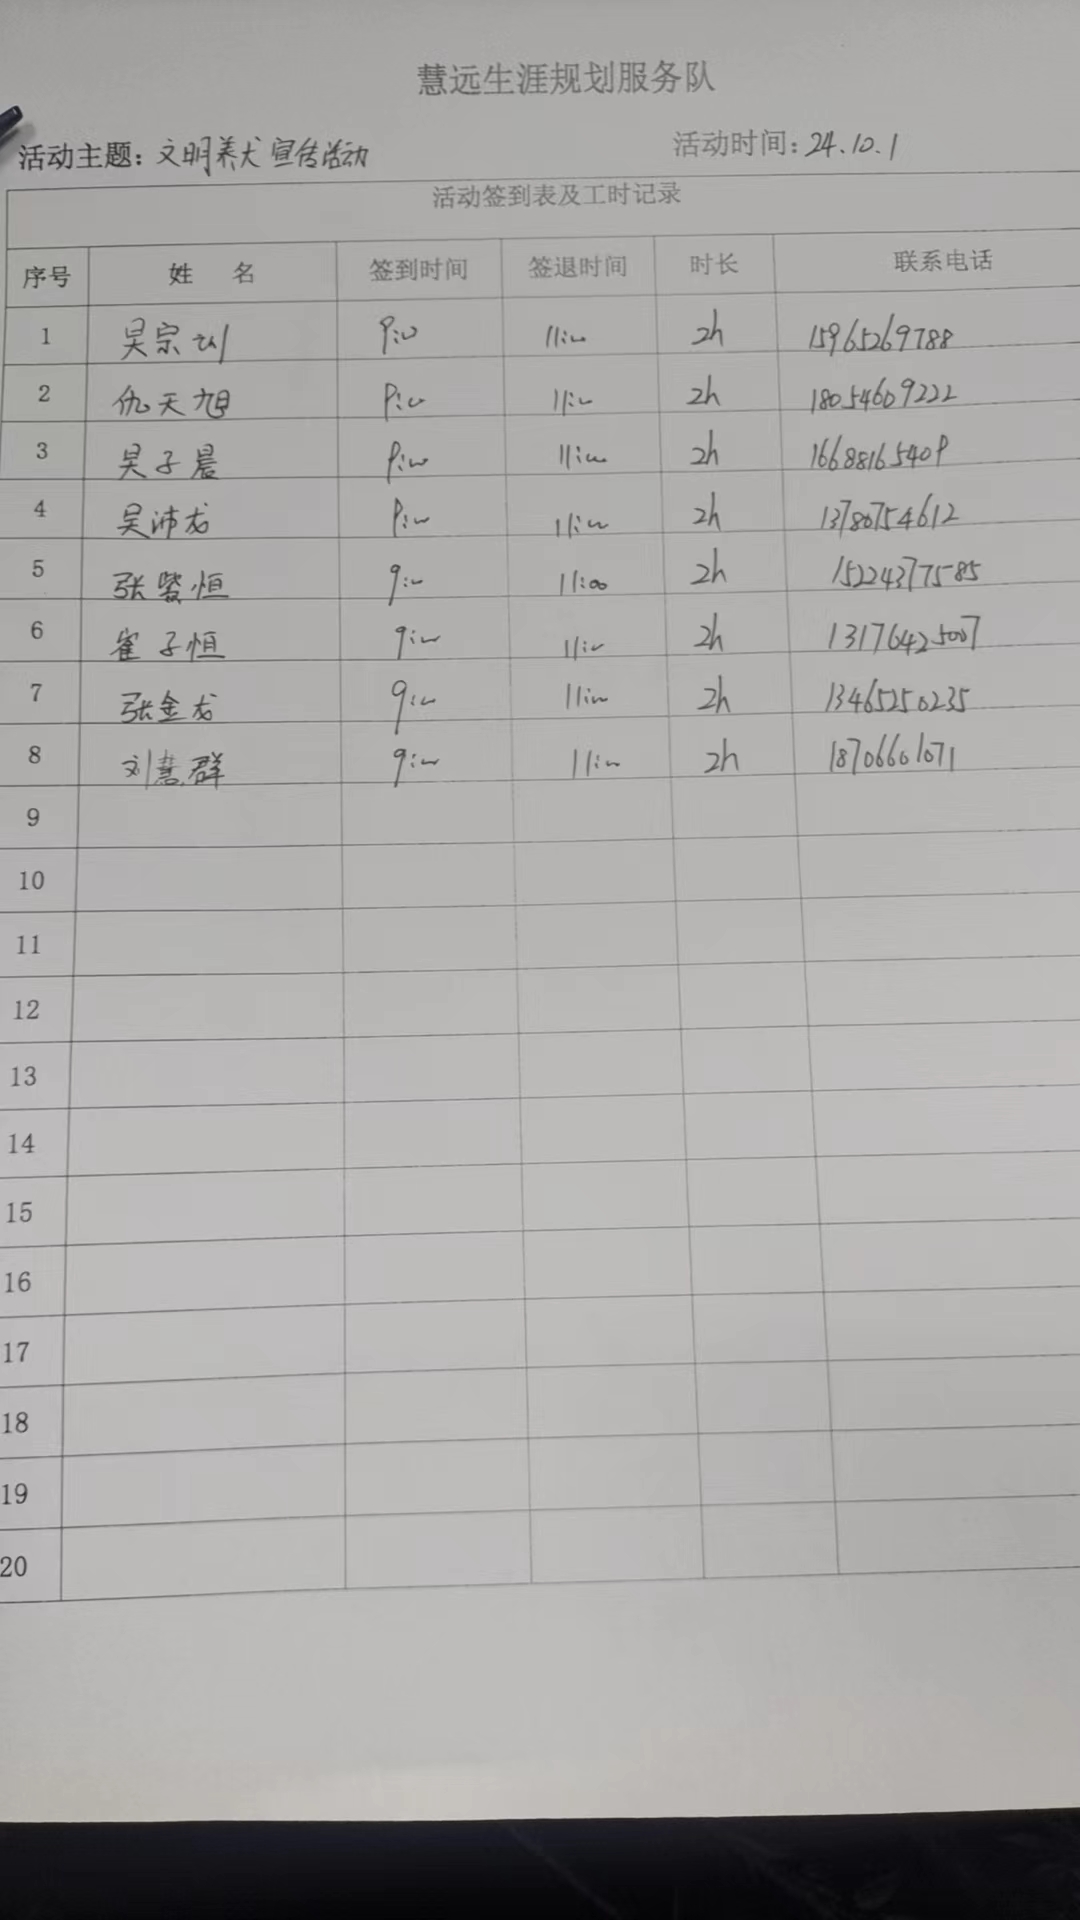 慧远生涯规划服务队
活动主题：文明养犬宣传活动 活动时间：24.10.1
活动签到表及工时记录
序号 姓 名 签到时间 签退时间 时长 联系电话
1 吴宗 9:00 11:00 2h 15965269788
2 仇天旭 9:00 11:00 2h 18054609222
3 吴子晨 9:00 11:00 2h 16688165409
4 吴沛龙 9:00 11:00 2h 13780754612
5 张誉恒 9:00 11:00 2h 15224377585
6 崔子恒 9:00 11:00 2h 13176425007
7 张金龙 9:00 11:00 2h 13465250235
8 刘慧群 9:00 11:00 2h 18706601071
9
10
11
12
13
14
15
16
17
18
19
20